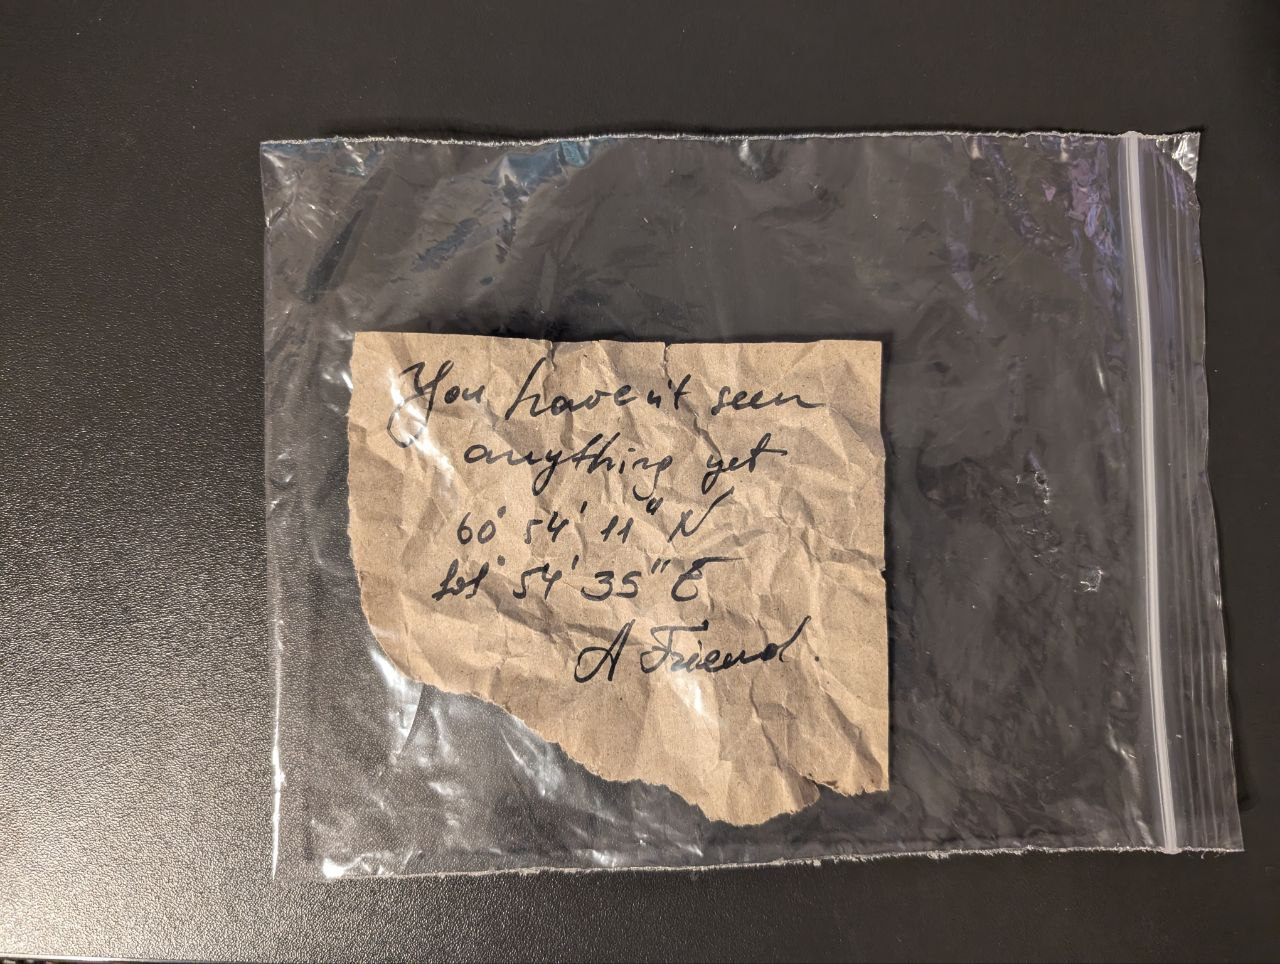 You haven't seen
anything yet
60° 54' 11" N
101° 54' 35" E
A Friend.